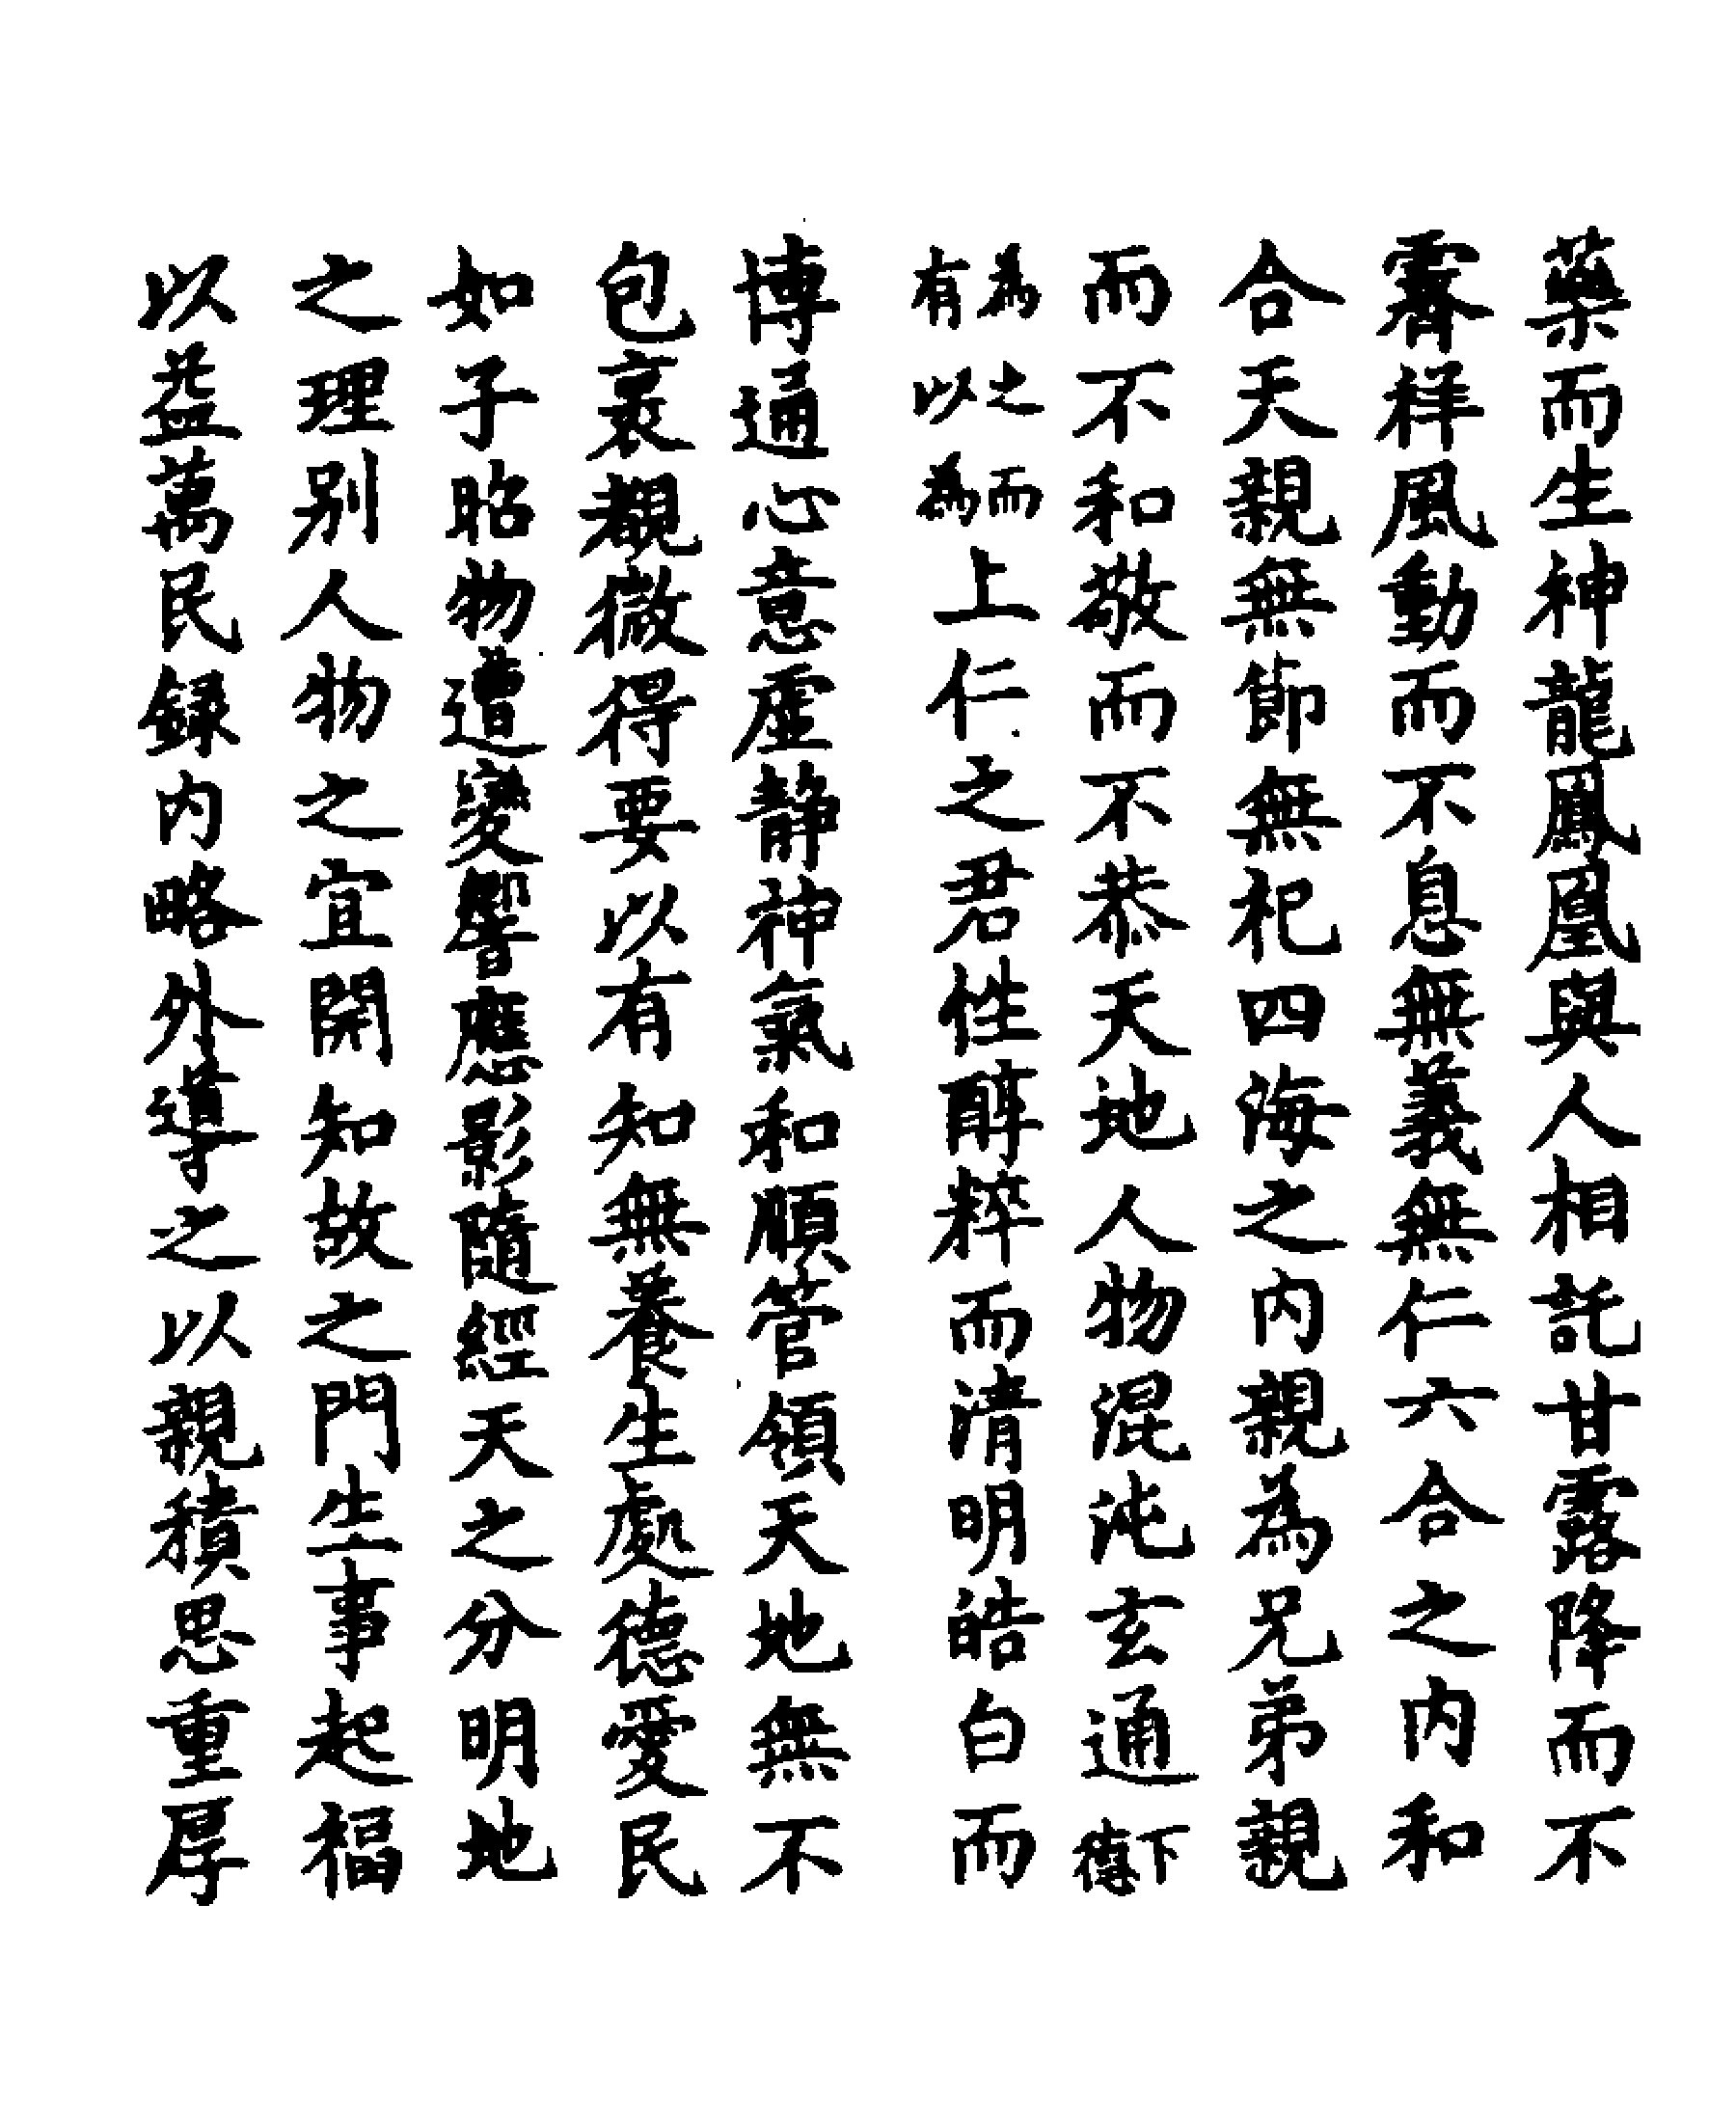 藥而生神龍鳳凰與人相託甘露降而不
霽祥風動而不息無義無仁六合之内和
合天親無節無祀四海之内親為兄弟親
而不和敬而不恭天地人物混沌玄通下德
為之而有以為上仁之君性醇粹而清明皓白而
博通心意虛靜神氣和順管領天地無不
包裹覩微得要以有知無養生處德愛民
如子昭物遭變響應影隨經天之分明地
之理别人物之宜開知故之門生事起福
以益萬民録内略外導之以親積思重厚